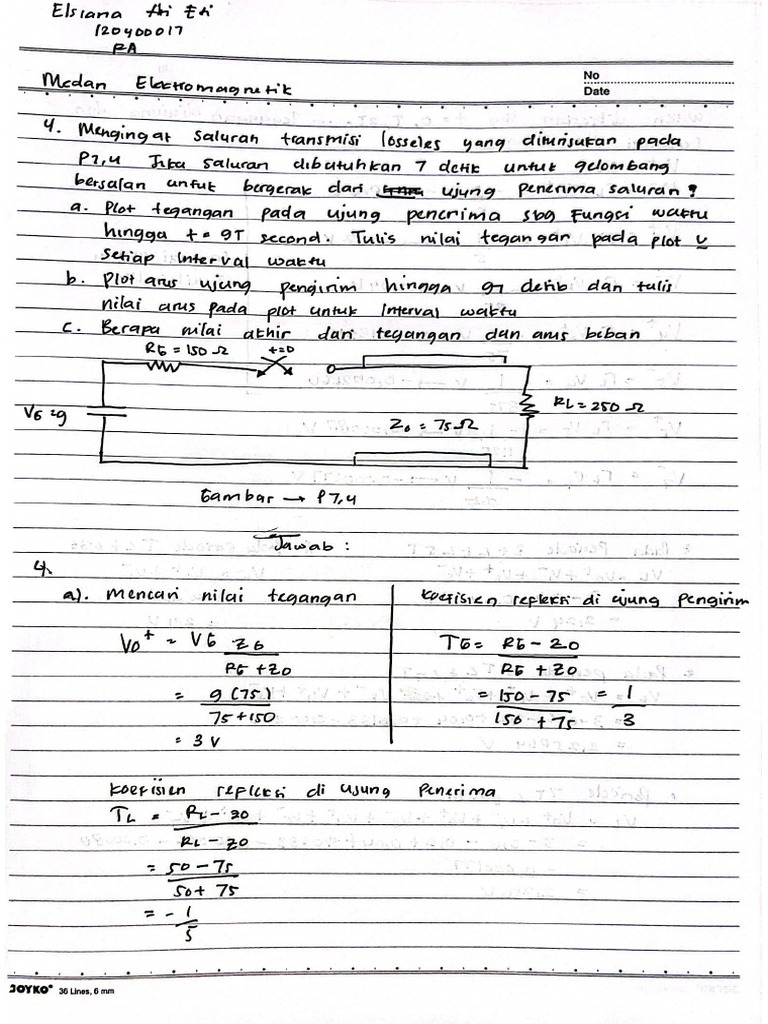 Elsiana Ari Eti
120400017
RA
Medan Elektromagnetik
No
Date
4. Mengingat saluran transmisi losseles yang ditunjukan pada
P7,4 Jika saluran dibutuhkan 7 detik untuk gelombang
bersalan untuk bergerak dari ujung penerima saluran?
a. Plot tegangan pada ujung penerima sbg Fungsi waktu
hingga t = 9T second. Tulis nilai tegangan pada plot u
setiap interval waktu
b. Plot arus ujung pengirim hingga 97 detib dan tulis
nilai arus pada plot untuk Interval waktu
c. Berapa nilai akhir dari tegangan dan arus beban
RG = 150 Ω
t=0
VG = 9
Z0 = 75 Ω
RL = 250 Ω
Gambar → P7,4
Jawab :
4.
a). Mencari nilai tegangan
V0+ = VG Z0 / RG + Z0
= 9 (75) / 75 + 150
= 3 V
Koefisien refleksi di ujung pengirim
TG = RG - Z0 / RG + Z0
= 150 - 75 / 150 + 75 = 1 / 3
Koefisien refleksi di ujung Penerima
TL = RL - Z0 / RL - Z0
= 50 - 75 / 50 + 75
= - 1 / 5
JOYKO® 36 Lines, 6 mm